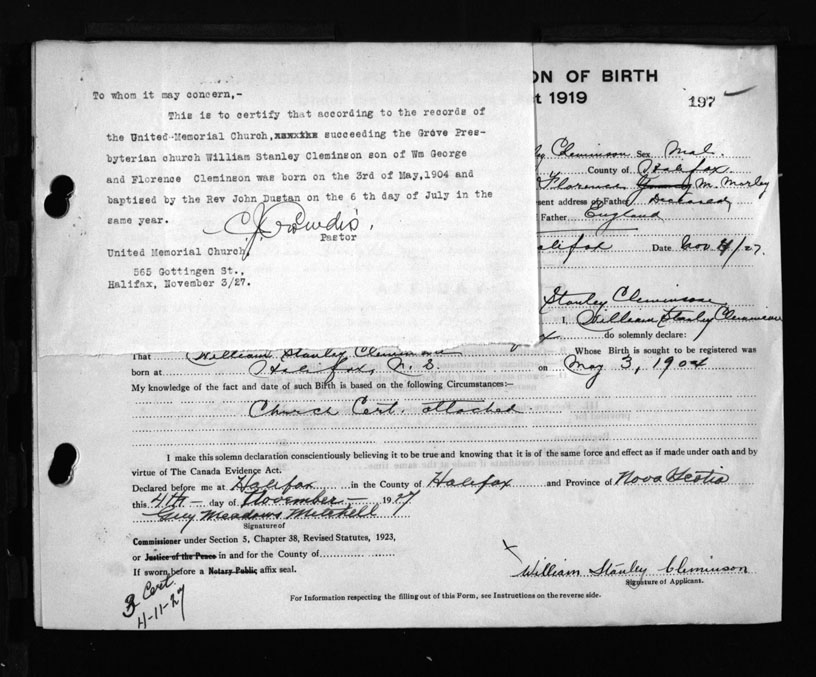 To whom it may concern,-
This is to certify that according to the records of
the United Memorial Church, succeeding the Grove Pres-
byterian church William Stanley Cleminson son of Wm George
and Florence Cleminson was born on the 3rd of May,1904 and
baptised by the Rev John Dustan on the 6 th day of July in the
same year.
Pastor
United Memorial Church,
565 Gottingen St.,
Halifax, November 3/27.
ON OF BIRTH
t 1919
197
Cleminson Sex Mal.
County of Halifax
Florence M. Morley
sent address of Father Deceased
Father England
alifax Date Nov 4/27.
Stanley Cleminson
I, William Stanley Cleminson
do solemnly declare:
That William Stanley Cleminson Whose Birth is sought to be registered was
born at Halifax, N. S. on May 3, 1904
My knowledge of the fact and date of such Birth is based on the following Circumstances:—
Church Cert. attached.
I make this solemn declaration conscientiously believing it to be true and knowing that it is of the same force and effect as if made under oath and by
virtue of The Canada Evidence Act.
Declared before me at Halifax in the County of Halifax and Province of Nova Scotia
this 4th day of November 1927
Guy Meadows Mitchell
Signature of
Commissioner under Section 5, Chapter 38, Revised Statutes, 1923,
or Justice of the Peace in and for the County of
If sworn before a Notary Public affix seal.
x William Stanley Cleminson
Signature of Applicant.
For Information respecting the filling out of this Form, see Instructions on the reverse side.
3 Cert.
4-11-27